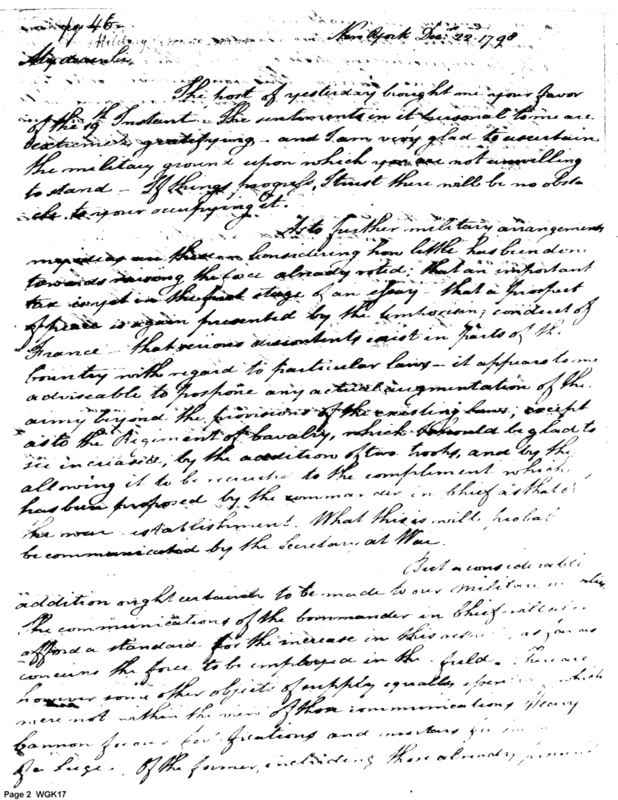 pg. 45
New York Decr. 22d 1798
My dear Sir,
The post of yesterday brought me your favor
of the 19th Instant. The sentiments in it personal to me are
extremely gratifying – and I am very glad to ascertain
the military ground upon which you are not unwilling
to stand – If things progress, I trust there will be no obsta
cle to your occupying it.
As to further military arrangements
my ideas are these – Considering how little has been done
towards raising the force already voted; that an important
tax is yet in the first stage of an essay – that a prospect
of peace is again presented by the conduct of
France – that serious discontents exist in parts of the
Country with regard to particular laws – it appears to me
adviseable to postpone any actual augmentation of the
army beyond the provisions of the existing laws; except
as to the Regiment of Cavalry, which I should be glad to
see increased, by the addition of two troops, and by the
allowing it to be recruited to the complement which
has been proposed by the commander in chief as that of
the war establishment. What this is will probab
be communicated by the Secretary at War.
But a considerable
addition ought certainly to be made to our military
The communications of the Commander in Chief will
afford a standard for the increase in this as far as
concerns the force to be employed in the field. There are
however some other objects of supply equally which
were not within the view of those communications Heavy
Cannon for our fortifications and mortars for
of a siege. Of the former, including those already
Page 2 WGK17